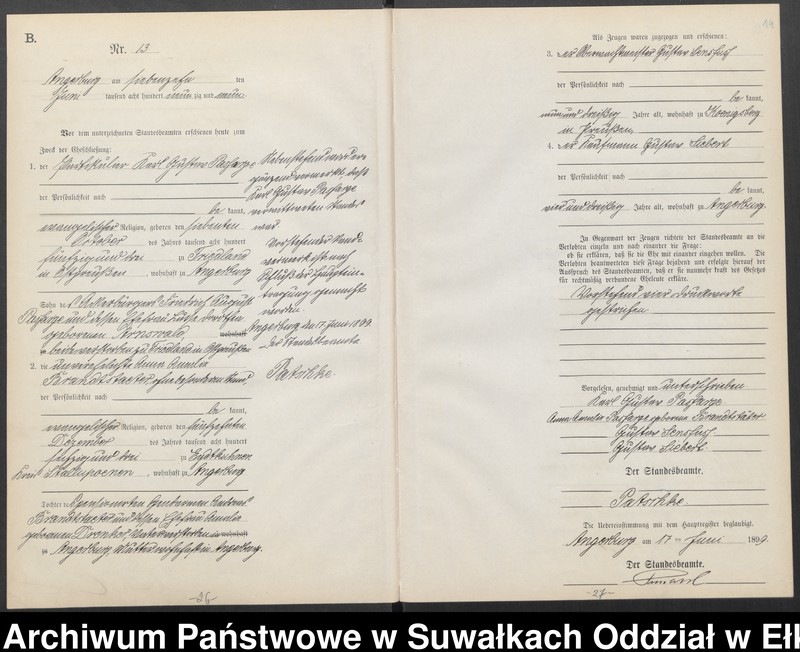 B.
Nr. 13
Angerburg am siebenzehn ten
Juni tausend acht hundert neun zig und neun.
Vor dem unterzeichneten Standesbeamten erschienen heute zum
Zweck der Eheschließung:
1. der Partikulier Karl Gustav Passarge
der Persönlichkeit nach
be kannt,
evangelischer Religion, geboren den siebenten
October des Jahres tausend acht hundert
fünfzig und drei zu Friedland
in Ostpreußen, wohnhaft zu Angerburg
Sohn des Ackerbürgers Friedrich August
Passarge und dessen Ehefrau Louise Dorothea
geborenen wohnhaft
zu beide verstorben zu Friedland in Ostpreußen
2. die unverehelichte Anna Amalie
Brandtstaeter, ohne besonderen Stand,
der Persönlichkeit nach
be kannt,
evangelischer Religion, geboren den fünfzehnten
Dezember des Jahres tausend acht hundert
fünfzig und drei zu Eydtkuhnen
Kreis Stallupoenen, wohnhaft zu Angerburg
Tochter des pensionirten Gendarmen
Brandtstaeter und dessen Ehefrau Amalie
geborenen Vater verstorben wohnhaft
zu Angerburg, Mutter wohnhaft in Angerburg.
Nebenstehend wird er-
gänzend vermerkt, daß
Karl Gustav Passarge
verwittweten Standes
war.
Vorstehender Rand-
vermerk ist nach
Schluß der Haupteintragung gemacht
worden
Angerburg den 17. Juni 1899.
Der Standesbeamte
Patschke.
-26-
19
Als Zeugen waren zugezogen und erschienen:
3. der Oberwachtmeister Gustav Sensfuß
der Persönlichkeit nach
be kannt,
neun und dreißig Jahre alt, wohnhaft zu Koenigsberg
in Preußen
4. der Kaufmann Gustav Siebert
der Persönlichkeit nach
be kannt,
vier und dreißig Jahre alt, wohnhaft zu Angerburg.
In Gegenwart der Zeugen richtete der Standesbeamte an die
Verlobten einzeln und nach einander die Frage:
ob sie erklären, daß sie die Ehe mit einander eingehen wollen. Die
Verlobten beantworteten diese Frage bejahend und erfolgte hierauf der
Ausspruch des Standesbeamten, daß er sie nunmehr kraft des Gesetzes
für rechtmäßig verbundene Eheleute erkläre.
Vorstehend vier Druckworte
gestrichen
Vorgelesen, genehmigt und unterschrieben
Karl Gustav Passarge
Anna Amalie Passarge geborene Brandtstäter
Gustav Sensfuß
Gustav Siebert
Der Standesbeamte.
Patschke.
Die Uebereinstimmung mit dem Hauptregister beglaubigt.
Angerburg am 17 ten Juni 1899.
Der Standesbeamte.
-27-
Archiwum Państwowe w Suwałkach Oddział w Ełk